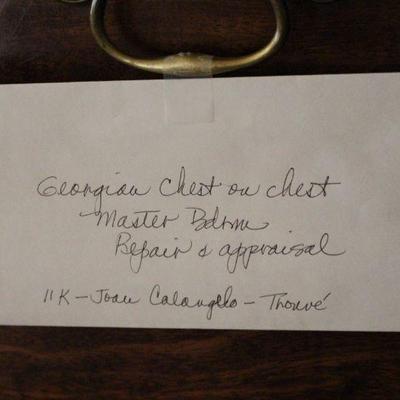 Georgian Chest on chest
Master Bdrm
Repair & appraisal
11K - Joan Calangelo - Trouvé